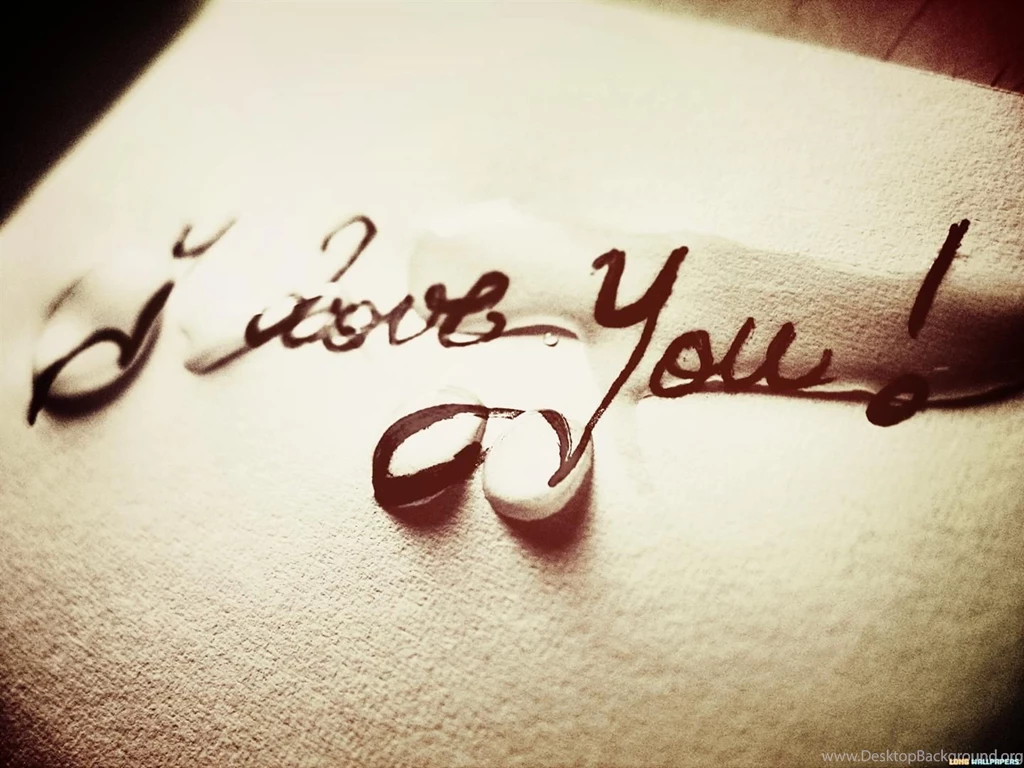 I love You!
www.DesktopBackground.org
LONG WALLPAPERS